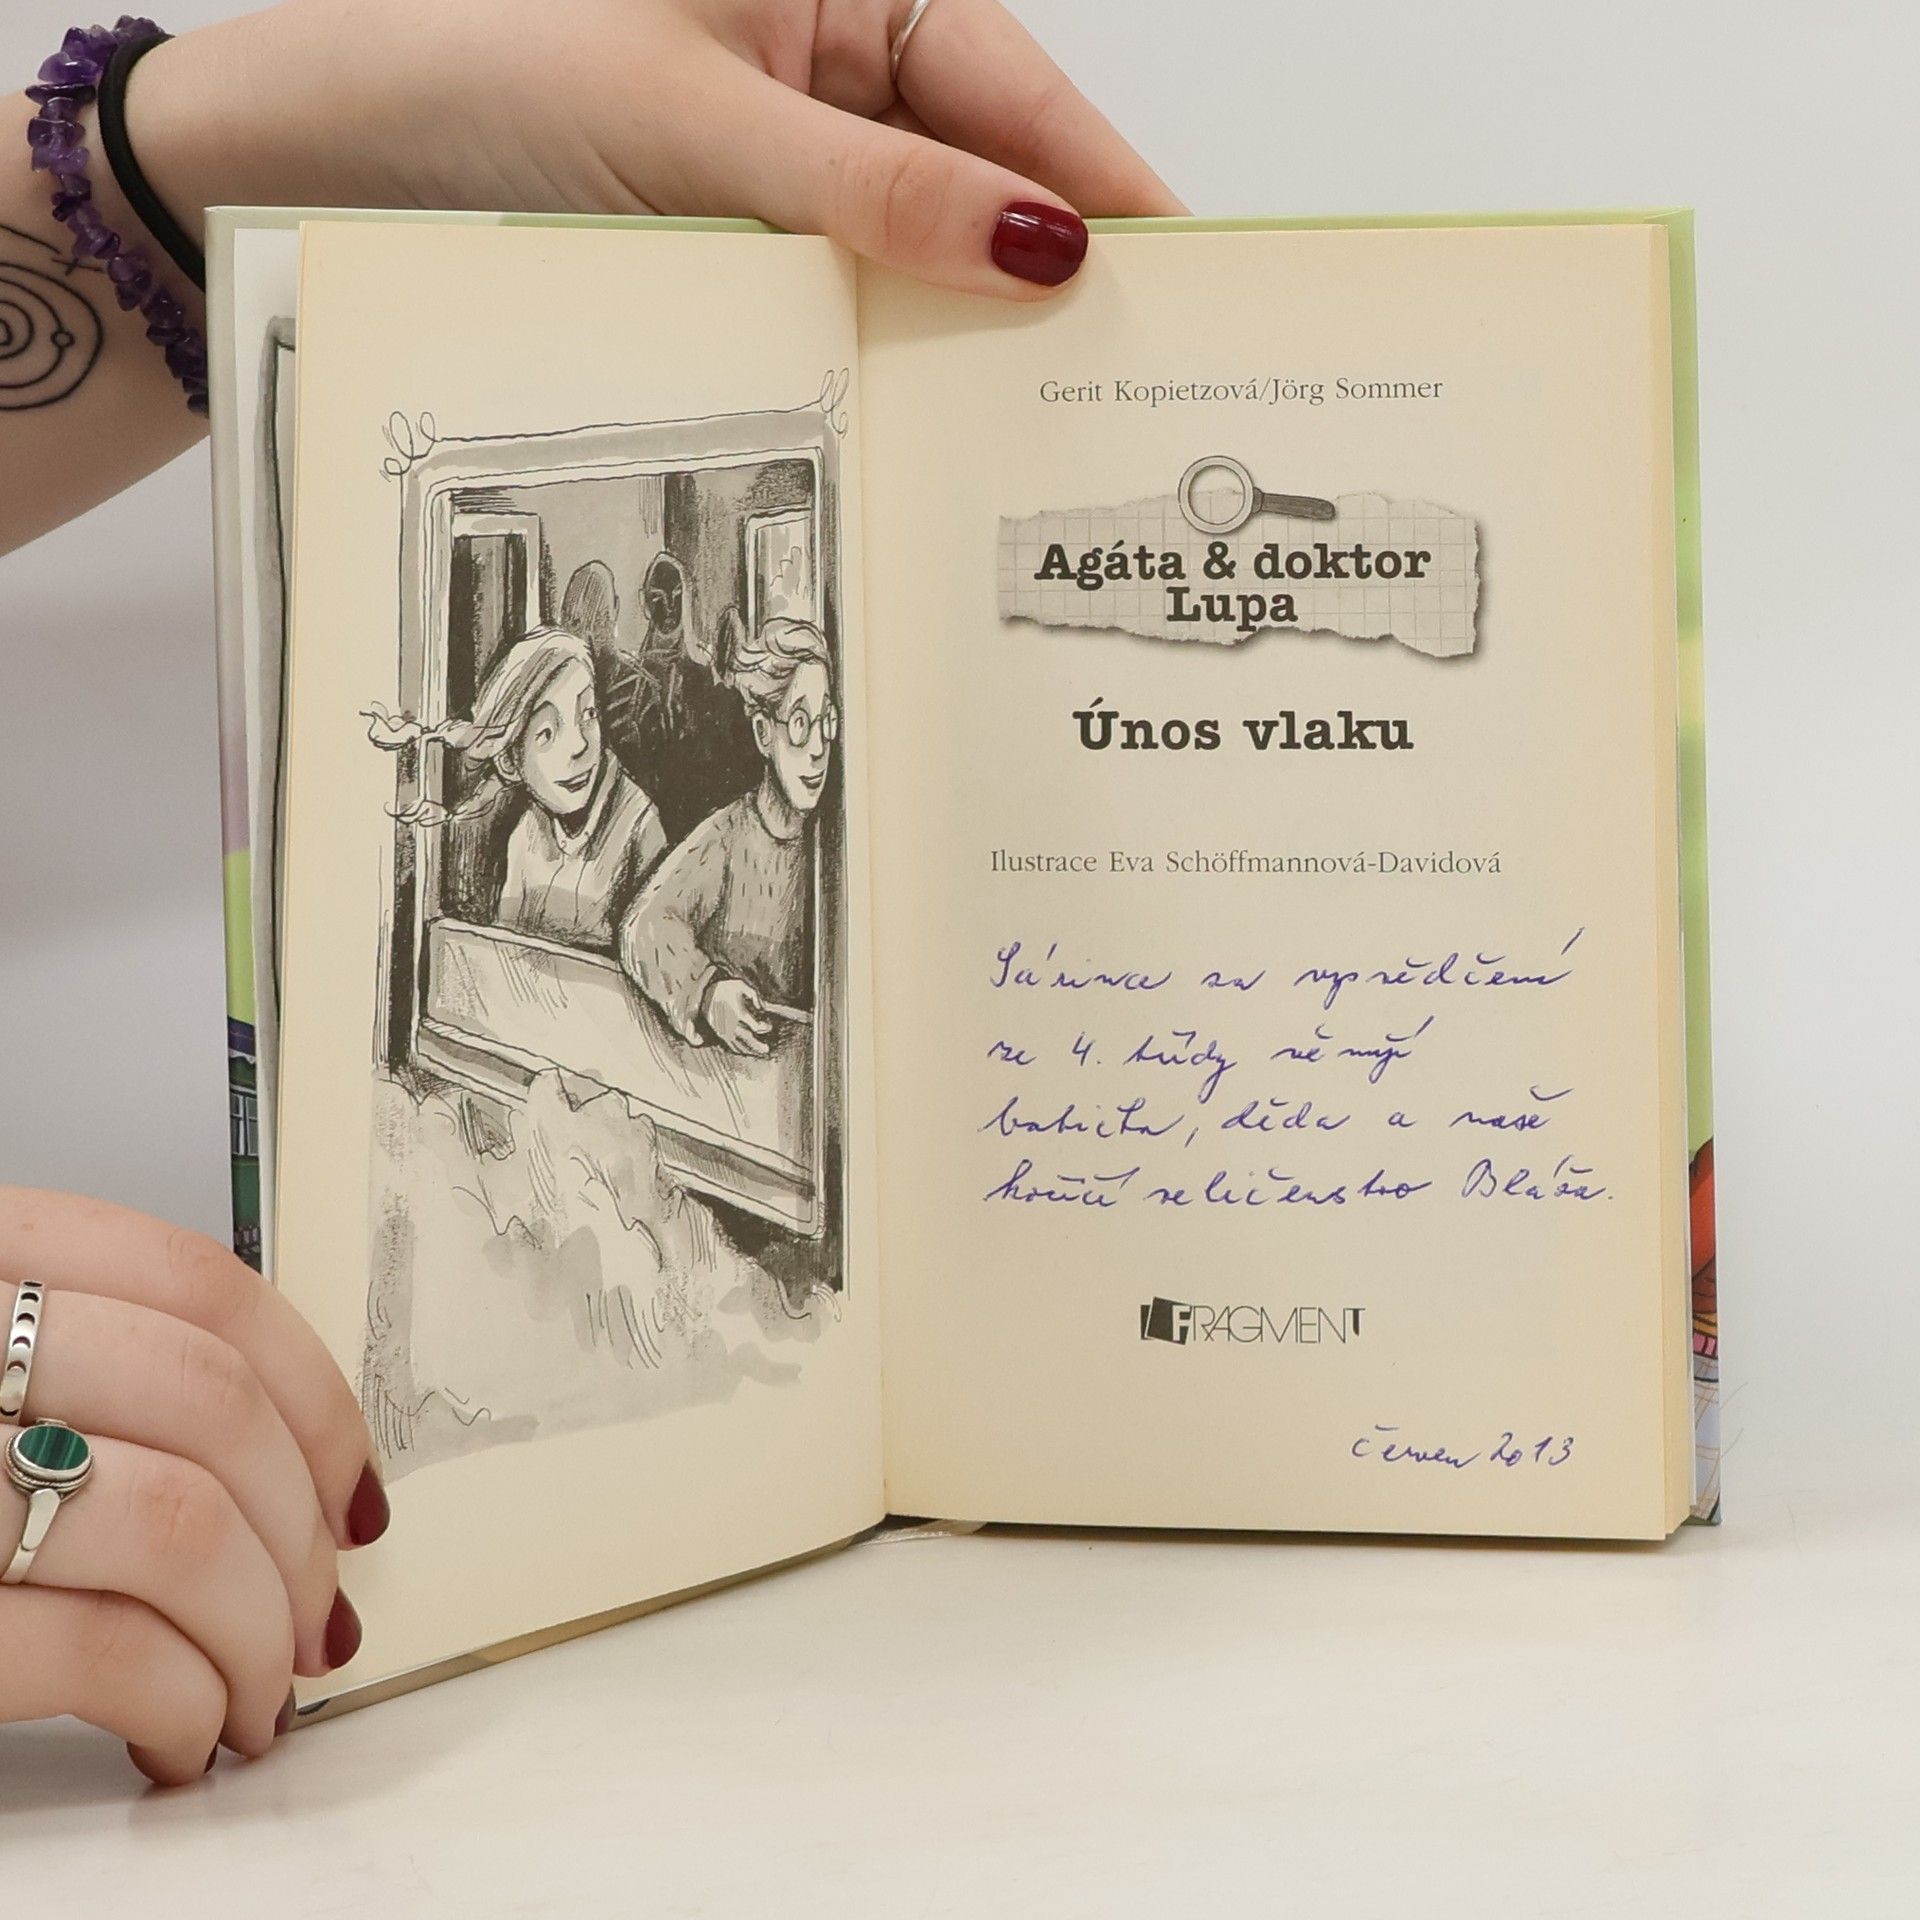 Gerit Kopietzová/Jörg Sommer
Agáta & doktor
Lupa
Únos vlaku
Ilustrace Eva Schöffmannová-Davidová
Sárince za vysvědčení
ze 4. třídy věnují
babička, děda a naše
kočičí veličenstvo Bláža.
FRAGMENT
červen 2013